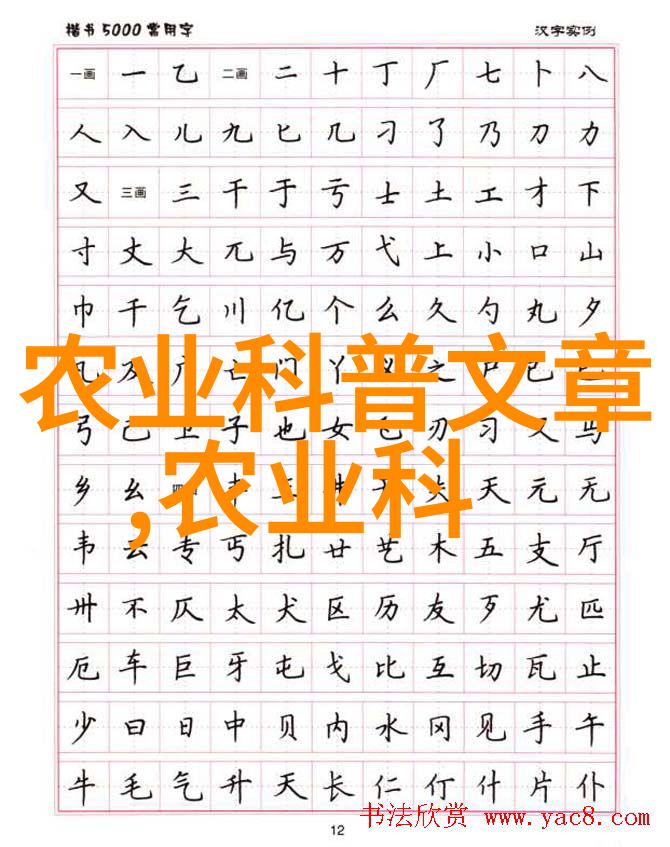 楷书5000常用字 汉字实例
一画 一 乙 二画 二 十 丁 厂 七 卜 八
人 入 儿 九 匕 几 刁 了 乃 刀 力
又 三画 三 干 于 亏 士 土 工 才 下
寸 丈 大 兀 与 万 弋 上 小 口 山
巾 千 乞 川 亿 个 么 久 勺 丸 夕
农业科普文章
凡 及 广 亡 门 丫 义 之 尸 已
弓 己 卫 子 也 女 飞 刃 习 叉 马
,农业科
乡 幺 天 元 无
韦 云 专 丐 扎 廿 艺 木 五 支 厅
卅 不 仄 太 犬 区 历 友 歹 尤 匹
厄 车 巨 牙 屯 戈 比 互 切 瓦 止
少 曰 日 中 贝 内 水 冈 见 手 午
牛 毛 气 升 夭 长 仁 仃 什 片 仆
12
书法欣赏 www.yac8.com